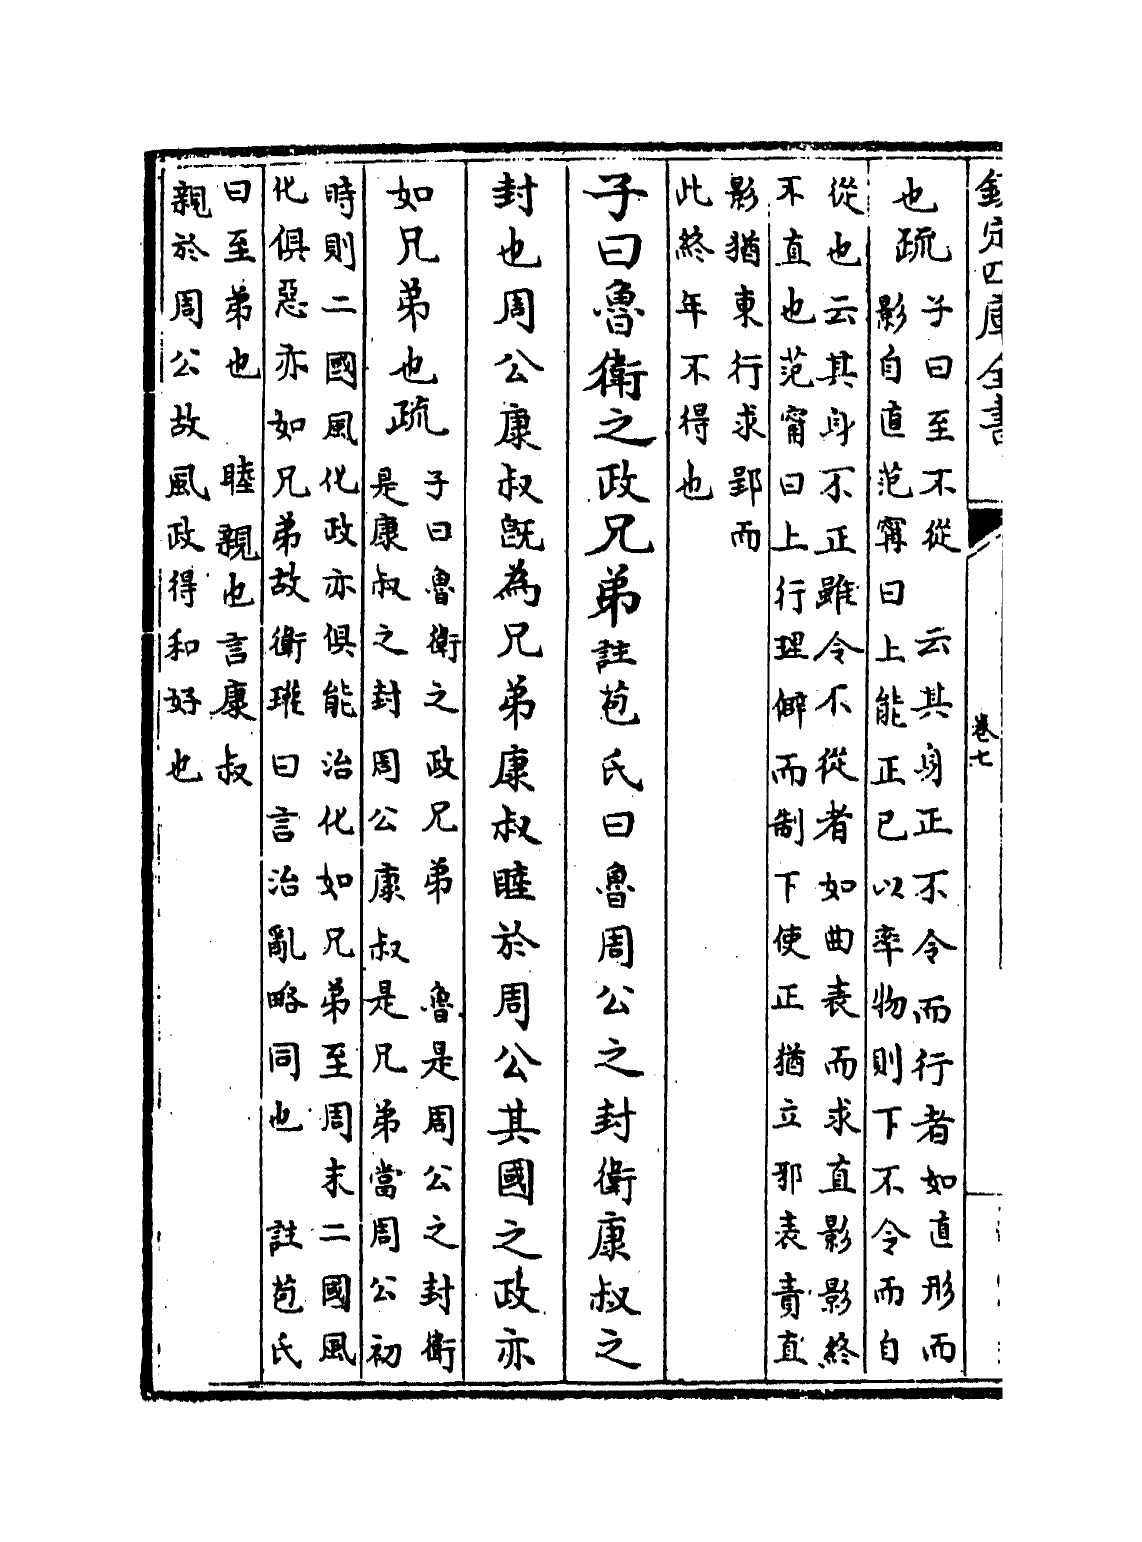 欽定四庫全書
卷七
也疏
子曰至不從　云其身正不令而行者如直形而
影自直范寗曰上能正已以率物則下不令而自
從也云其身不正雖令不從者如曲表而求直影影終
不直也范甯曰上行理僻而制下使正猶立邪表責直
影猶東行求郢而
此終年不得也
子曰魯衛之政兄弟註苞氏曰魯周公之封衛康叔之
封也周公康叔既為兄弟康叔睦於周公其國之政亦
如兄弟也疏
子曰魯衛之政兄弟　魯是周公之封衛
是康叔之封周公康叔是兄弟當周公初
時則二國風化政亦俱能治化如兄弟至周末二國風
化俱惡亦如兄弟故衛瓘曰言治亂略同也　註苞氏
曰至弟也　睦親也言康叔
親於周公故風政得和好也